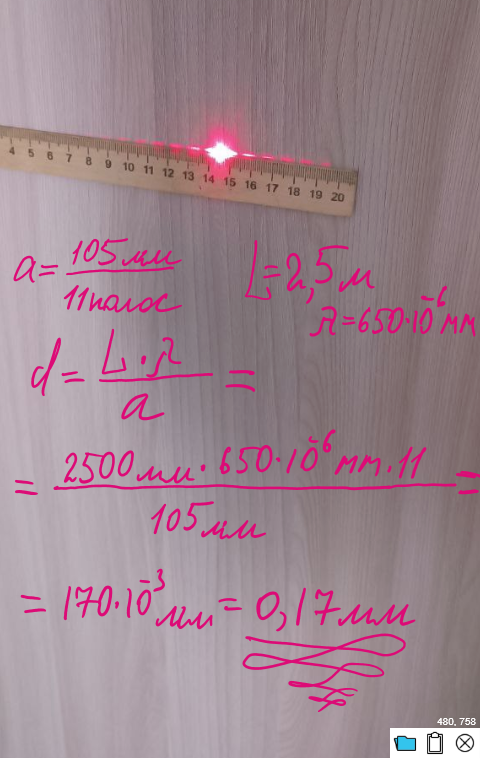 4 5 6 7 8 9 10 11 12 13 14 15 16 17 18 19 20
a = 105мм / 11 полос
L = 2,5 м
λ = 650·10⁻⁶ мм
d = L·λ / a =
= 2500 мм · 650·10⁻⁶ мм · 11 / 105 мм =
= 170·10⁻³ мм = 0,17 мм
480, 758